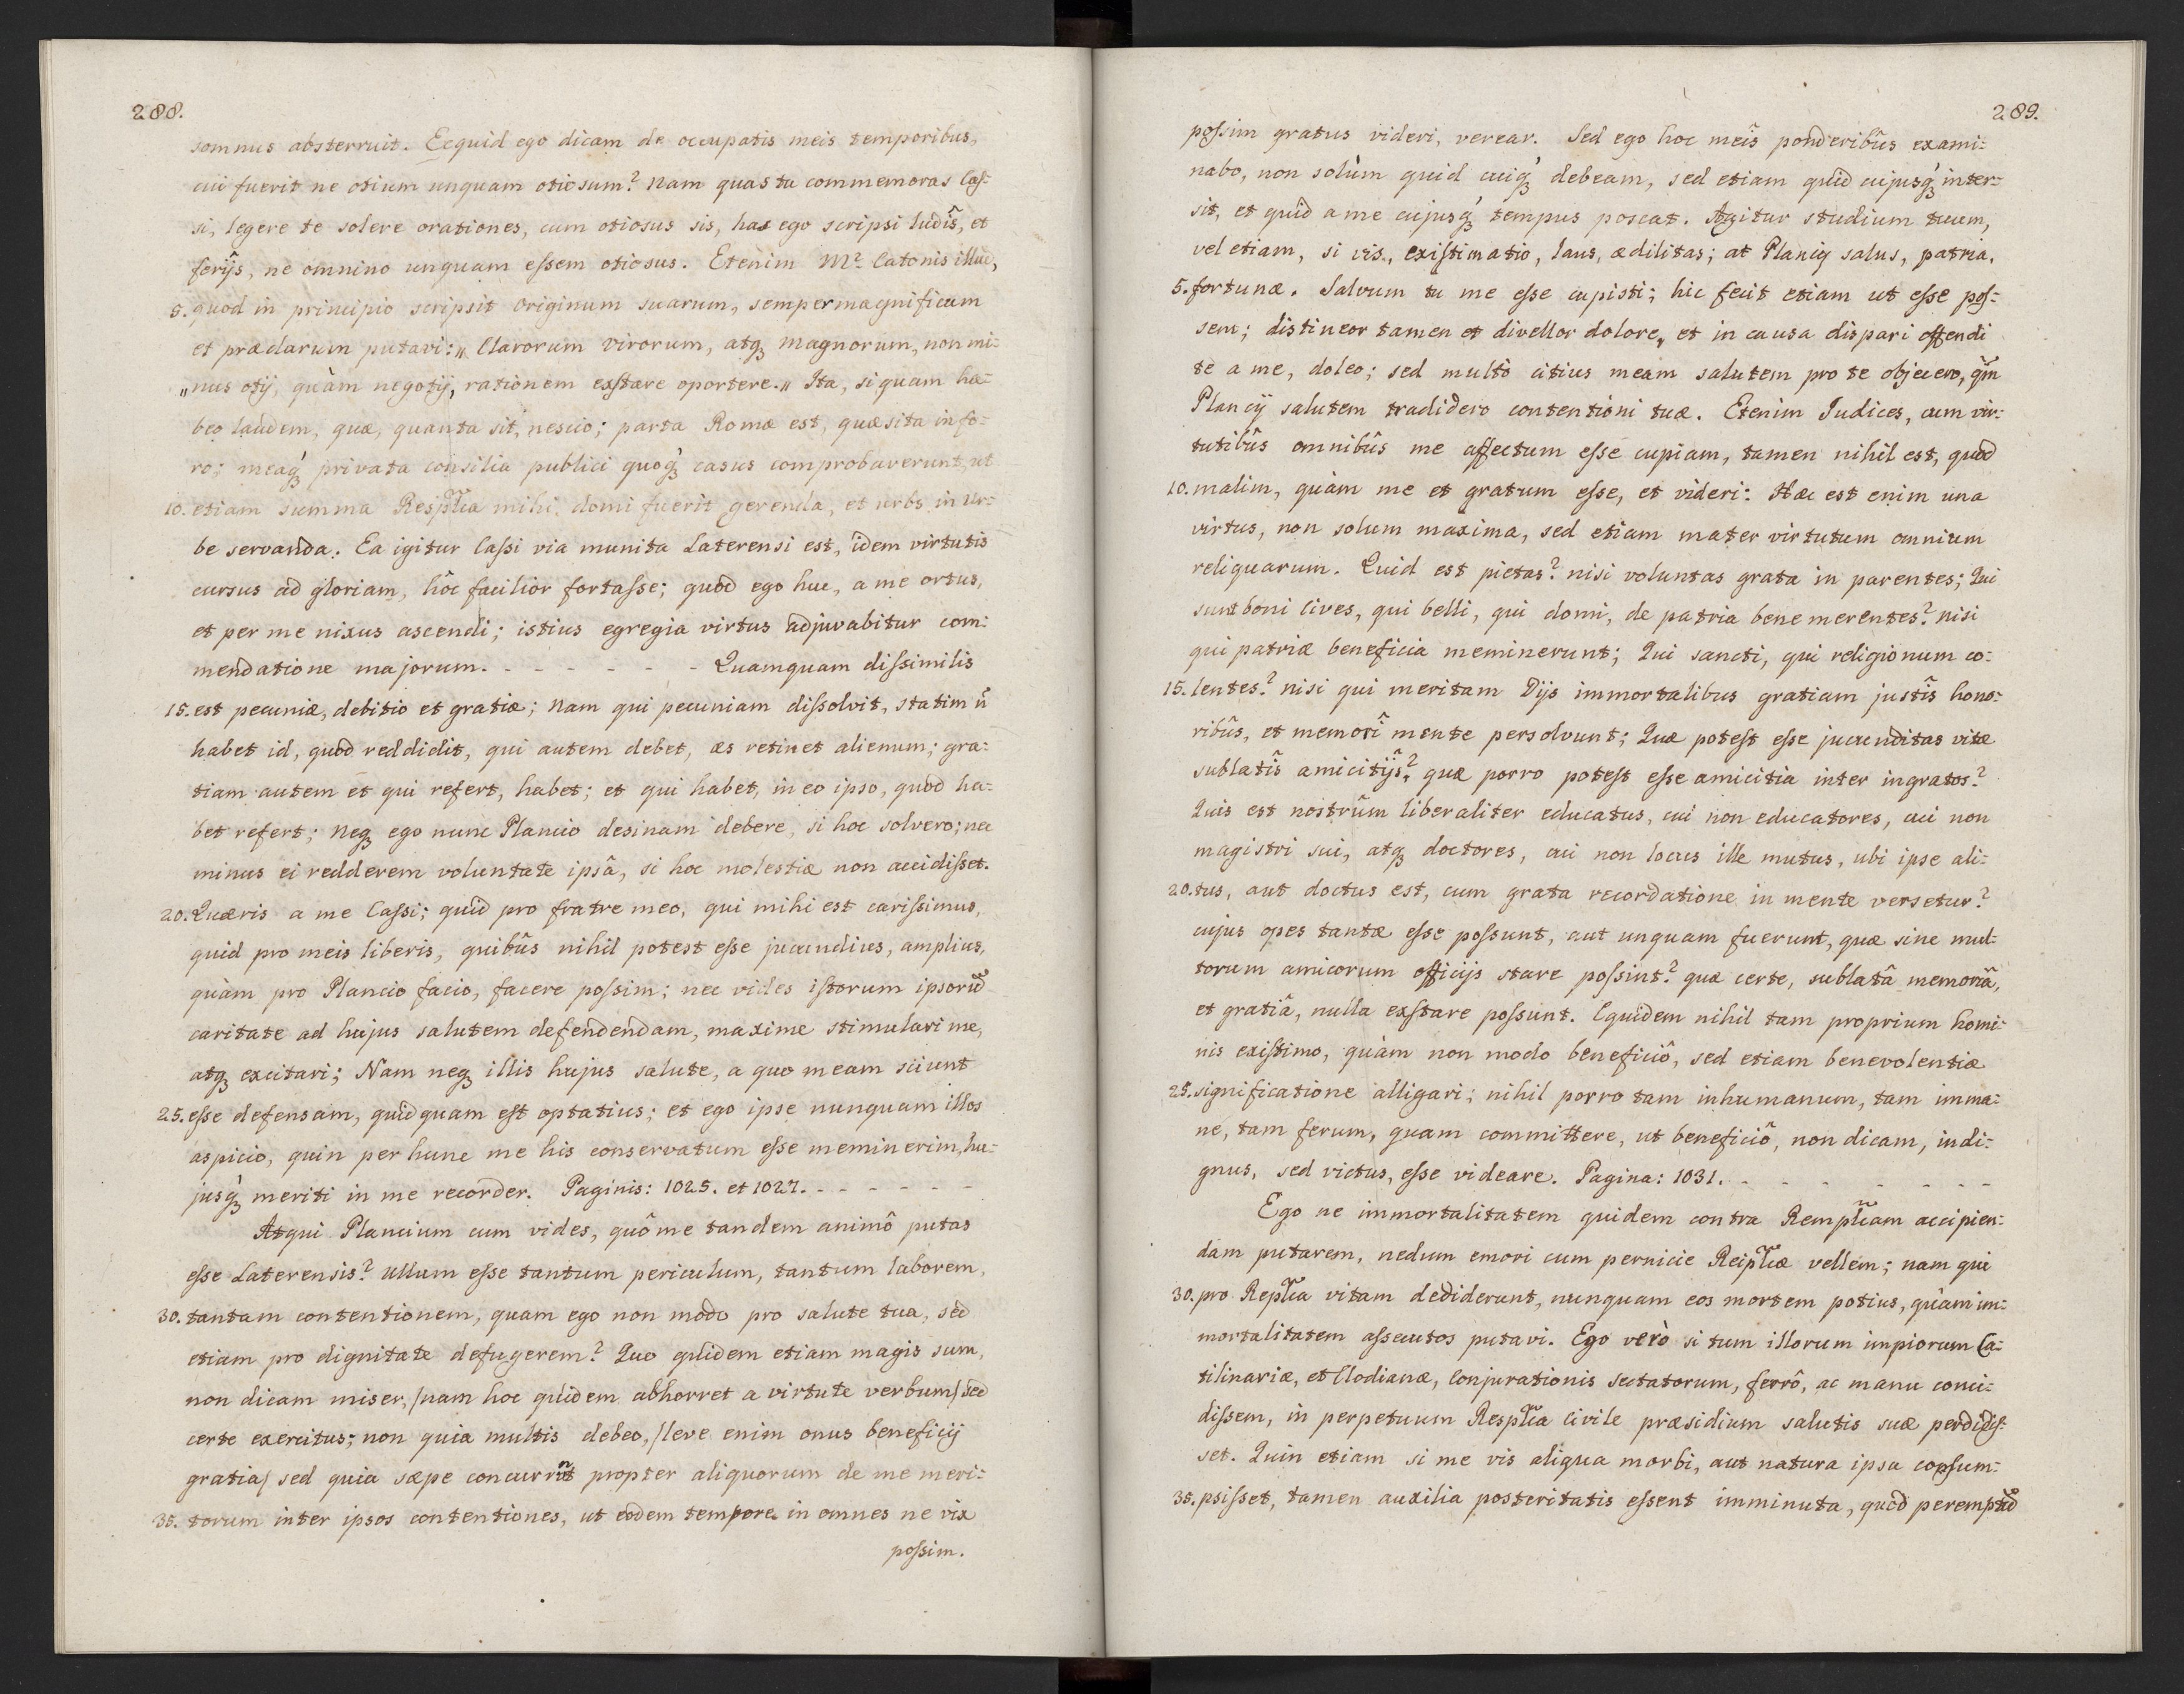 288.
somnus absterruit. Ecquid ego dicam de occupatis meis temporibus,
cui fuerit ne otium unquam otiosum? Nam quas tu commemoras Cas-
si, legere te solere orationes, cum otiosus sis, has ego scripsi ludîs, et
ferijs, ne omnino unquam eſsem otiosus. Etenim M? Catonis illud,
5. quod in principio scripsit Originum suarum, semper magnificum
et præclarum putavi: „ Clarorum virorum, atq; magnorum, non mi:
„nus otij, quàm negotij, rationem exstare oportere." Ita, si quam ha:
beo laudem, quæ, quanta sit, nescio; parta Romæ est, quæsita in fo:
ro; meaq́; privata consilia publici quoq́; casus comprobaverunt, ut
10. etiam summa Resp̃lica mihi domi fuerit gerenda, et urbs in ur:
be servanda. Ea igitur Caſsi via munita Laterensi est, idem virtutis
cursus ad gloriam, hôc facilior fortaſse; quod ego huc, a me ortus,
et per me nixus ascendi; istius egregia virtus adjuvabitur com:
mendatione majorum. - - - - - - - Quamquam diſsimilis
15. est pecuniæ, debitio et gratiæ; nam qui pecuniam diſsolvit, statim ñ
habet id, quod reddidit, qui autem debet, æs retinet alienum; gra:
tiam autem et qui refert, habet; et qui habet, in eo ipso, quod ha:
bet refert; neq; ego nunc Plancio desinam debere, si hoc solvero; nec
minus ei redderem voluntate ipsâ, si hoc molestiæ non accidiſset.
20. Quæris a me Caſsi; quid pro fratre meo, qui mihi est cariſsimus,
quid pro meis liberis, quibûs nihil potest eſse jucundius, amplius,
quàm pro Plancio facio, facere poſsim; nec vides istorum ipsorũ
caritate ad hujus salutem defendendam, maxime stimulari me,
atq; excitari; Nam neq; illis hujus salute, a quo meam sciunt
25. eſse defensam, quidquam est optatius; et ego ipse nunquam illos
aspicio, quin per hunc me his conservatum eſse meminerim, hu:
jusq́; meriti in me recorder. Paginis: 1025. et 1027. - - - - - -
Atqui Plancium cum vides, quô me tandem animô putas
eſse Laterensis? Ullum eſse tantum periculum, tantum laborem,
30. tantam contentionem, quam ego non modo pro salute tua, sed
etiam pro dignitate defugerem? Quo quidem etiam magis sum,
non dicam miser, /nam hoc quidem abhorret a virtute verbum/ sed
certe exercitus; non quia multis debeo, /leve enim onus beneficij
gratia/ sed quia sæpe concurrũt propter aliquorum de me meri:
35. torum inter ipsos contentiones, ut eodem tempore in omnes ne vix
poſsim.
289.
poſsim gratus videri, verear. Sed ego hoc meîs ponderibûs exami:
nabo, non solùm quid cuiq́; debeam, sed etiam quid cujusq́; inter:
sit, et quid a me cujusq́; tempus poscat. Agitur studium tuum,
vel etiam, si vis, existimatio, laus, ædilitas; at Plancij salus, patria,
5. fortunæ. Salvum tu me eſse cupisti; hic fecit etiam ut eſse poſ:
sem; distineor tamen et divellor dolore, et in causa dispari offendi
te a me, doleo; sed multò citius meam salutem pro te objecero, q̃m
Plancij salutem tradidero contentioni tuæ. Etenim Judices, cum vir:
tutibûs omnibûs me affectum eſse cupiam, tamen nihil est, quod
10. malim, quàm me et gratum eſse, et videri: Hæc est enim una
virtus, non solum maxima, sed etiam mater virtutum omnium
reliquarum. Quid est pietas? nisi voluntas grata in parentes; Qui
sunt boni Cives, qui belli, qui domi, de patria bene merentes? nisi
qui patriæ beneficia meminerunt; Qui sancti, qui religionum co:
15. lentes? nisi qui meritam Dijs immortalibus gratiam justîs hono:
ribûs, et memorî mente persolvunt; Quæ potest eſse jucunditas vitæ
sublatîs amicitijs? quæ porro potest eſse amicitia inter ingratos?
Quis est nostrûm liberaliter educatus, cui non educatores, cui non
magistri sui, atq; doctores, cui non locus ille mutus, ubi ipse ali:
20. tus, aut doctus est, cum grata recordatione in mente versetur?
cujus opes tantæ eſse poſsunt, aut unquam fuerunt, quæ sine mul:
torum amicorum officijs stare poſsint? quæ certe, sublatâ memoriâ,
et gratiâ, nulla exstare poſsunt. Equidem nihil tam proprium homi:
nis existimo, quàm non modo beneficiô, sed etiam benevolentiæ
25. significatione alligari; nihil porro tam inhumanum, tam imma:
ne, tam ferum, quam committere, ut beneficiô, non dicam, indi:
gnus, sed victus, eſse videare. Pagina: 1031. - - - - - - -
Ego ne immortalitatem quidem contra Remp̃licam accipien:
dam putarem, nedum emori cum pernicie Reip̃licæ vellem; nam qui
30. pro Rep̃lica vitam dediderunt, nunquam eos mortem potius, quàm im:
mortalitatem aſsecutos putavi. Ego verò si tum illorum impiorum Ca:
tilinariæ, et Clodianæ, Conjurationis sectatorum, ferrô, ac manu conci:
diſsem, in perpetuum Resp̃lica civile præsidium salutis suæ perdidiſ:
set. Quin etiam si me vis aliqua morbi, aut natura ipsa consum:
35. psiſset, tamen auxilia posteritatis eſsent imminuta, quòd peremptũ